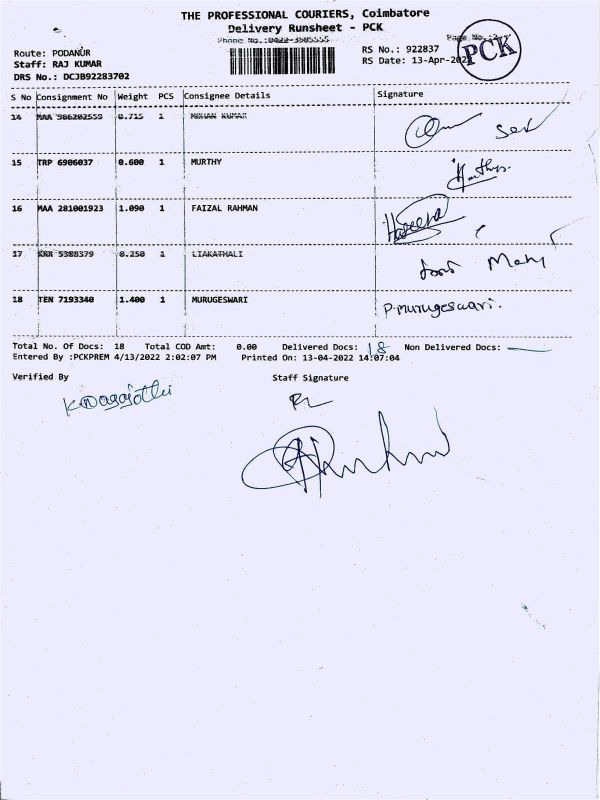 THE PROFESSIONAL COURIERS, Coimbatore
Delivery Runsheet - PCK
Phone No.:0422-3505555
Page No.:2
PCK
Route: PODANUR
RS No.: 922837
Staff: RAJ KUMAR
RS Date: 13-Apr-2022
DRS No.: DCJB92283702
S No Consignment No Weight PCS Consignee Details Signature
14 MAA 986202559 0.715 1 MOHAN KUMAR
15 TRP 6906037 0.600 1 MURTHY
16 MAA 281001923 1.090 1 FAIZAL RAHMAN Haseena
17 KRR 5380379 0.250 1 LIAKATHALI
18 TEN 7193340 1.400 1 MURUGESWARI P.murugeswari.
Total No. Of Docs: 18 Total COD Amt: 0.00 Delivered Docs: 18 Non Delivered Docs:
Entered By :PCKPREM 4/13/2022 2:02:07 PM Printed On: 13-04-2022 14:07:04
Verified By Staff Signature